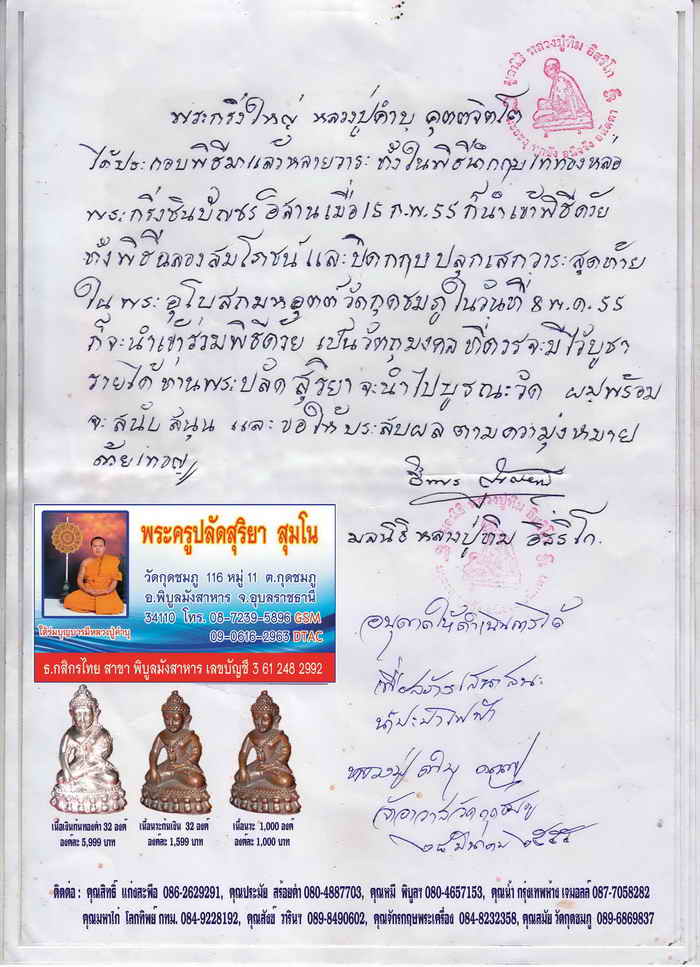 มูลนิธิ หลวงปู่ทิม อิสริโก
พระกริ่งใหญ่ หลวงปู่คำบุ คุตตจิตโต
ได้ประกอบพิธีมาแล้วหลายวาระ ทั้งในพิธีนำฤกษ์เททองหล่อ
พระกริ่งชินบัญชรอิสานเมื่อ 15 ก.พ. 55 ก็นำเข้าพิธีด้วย
ทั้งพิธีฉลองสมโภชน์ และปิดฤกษ์ปลุกเสกวาระสุดท้าย
ในพระอุโบสถมหอุตต์วัดกุดชมภูในวันที่ 8 พ.ค. 55
ก็จะนำเข้าร่วมพิธีด้วย เป็นวัตถุมงคลที่ควรจะมีไว้บูชา
รายได้ท่านพระปลัดสุริยาจะนำไปบูรณะวัด ผมพร้อม
จะสนับสนุน และขอให้ประสบผลตามความมุ่งหมาย
ด้วยเทอญ
มูลนิธิหลวงปู่ทิม อิสริโก
พระครูปลัดสุริยา สุมโน
วัดกุดชมภู 116 หมู่ 11 ต.กุดชมภู
อ.พิบูลมังสาหาร จ.อุบลราชธานี
34110 โทร. 08-7239-5896 GSM
09-0616-2963 DTAC
ใต้ร่มบุญบารมีหลวงปู่คำบุ
ธ.กสิกรไทย สาขา พิบูลมังสาหาร เลขบัญชี 3 61 248 2992
อนุญาตให้ดำเนินการได้
เพื่อสร้างเสนาสนะ
น้ำประปาไฟฟ้า
หลวงปู่คำบุ
เจ้าอาวาสวัดกุดชมภู
มีนาคม ๒๕๕๕
เนื้อเงินก้นทองคำ 32 องค์
องค์ละ 5,999 บาท
เนื้อนวะก้นเงิน 32 องค์
องค์ละ 1,599 บาท
เนื้อนวะ 1,000 องค์
องค์ละ 1,000 บาท
ติดต่อ : คุณสิทธิ์ แก่งสะพือ 086-2629291, คุณประมัย สร้อยคำ 080-4887703, คุณหมี พิบูลฯ 080-4657153, คุณน้ำ กรุงเทพห้าง เจมอลล์ 087-7058282
คุณมหาไก่ โลกทิพย์ กทม. 084-9228192, คุณสังข์ วารินฯ 089-8490602, คุณจักรกฤษพระเครื่อง 084-8232358, คุณสมัย วัดกุดชมภู 089-6869837